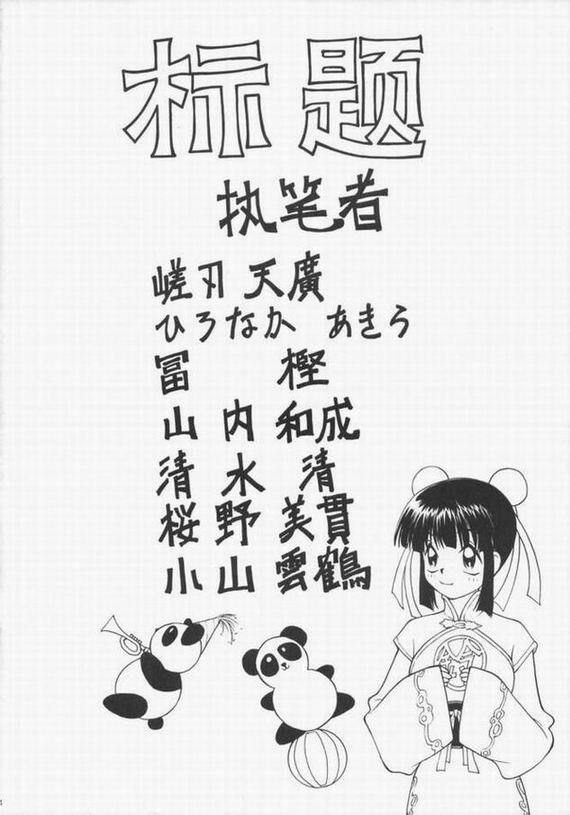 标题
执笔者
嵯刃 天廣
ひろなか あきら
冨 樫
山内 和成
清水 清
桜野 美貫
小山 雲鶴